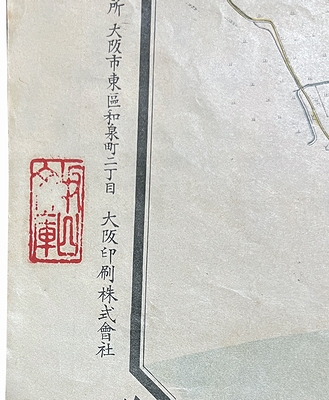 所 大阪市東區和泉町二丁目 大阪印刷株式會社